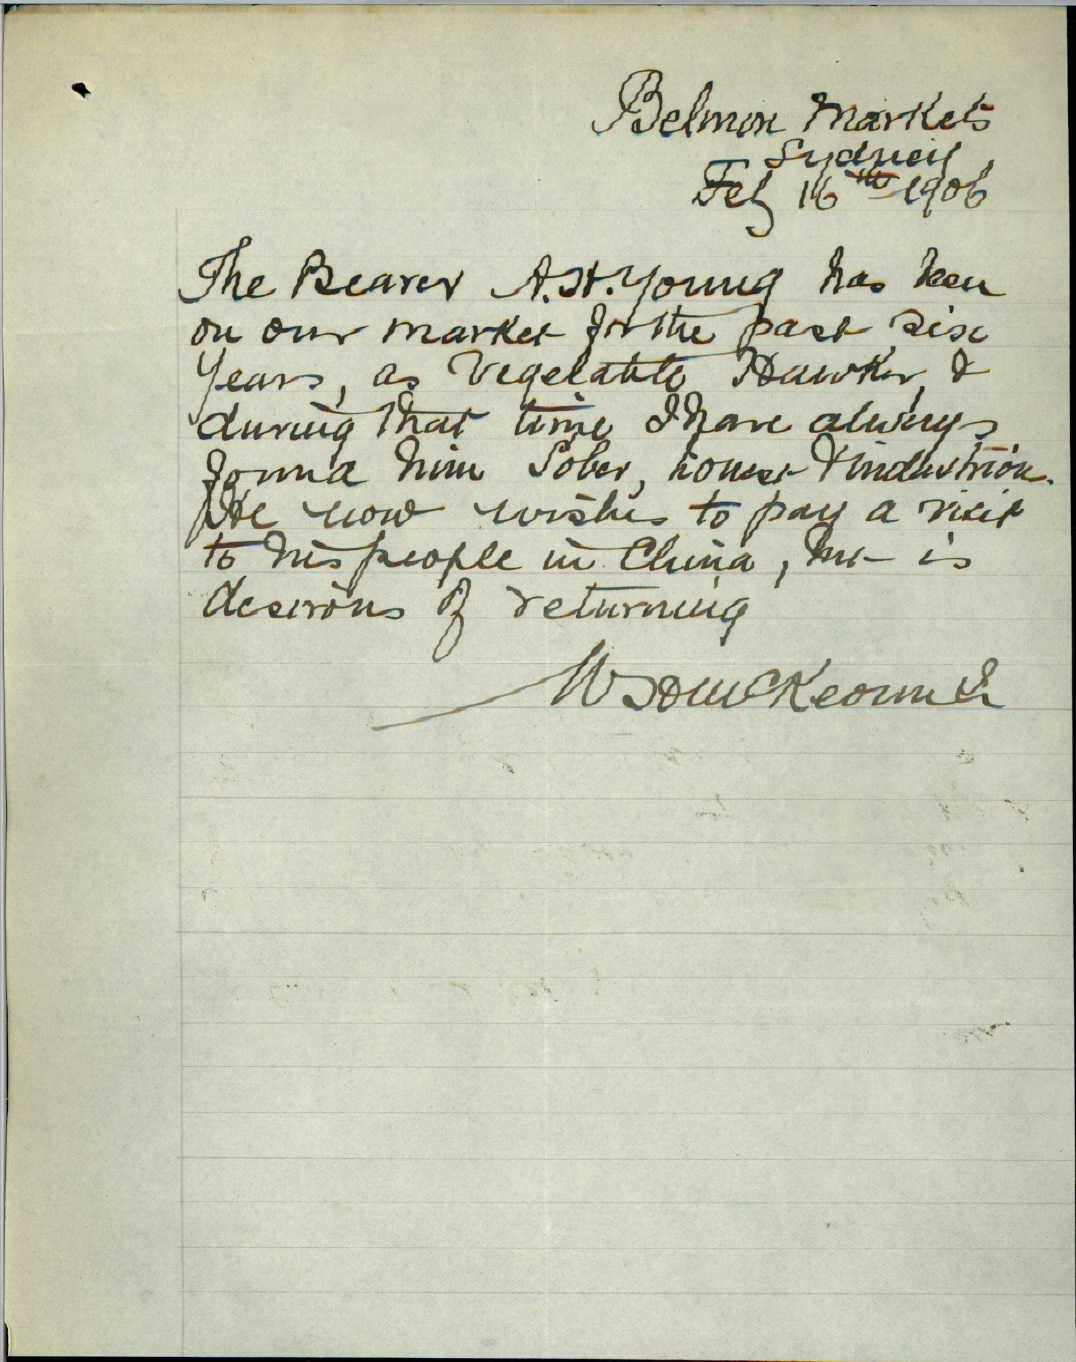 Belmore Markets
Sydney
Feb 16th 1906
The Bearer A.H. Young has been
on our market for the past six
years, as Vegetable Hawker, &
during that time I have always
found him Sober, honest & industrious.
He now wishes to pay a visit
to his people in China, but is
desirous of returning
McKeown